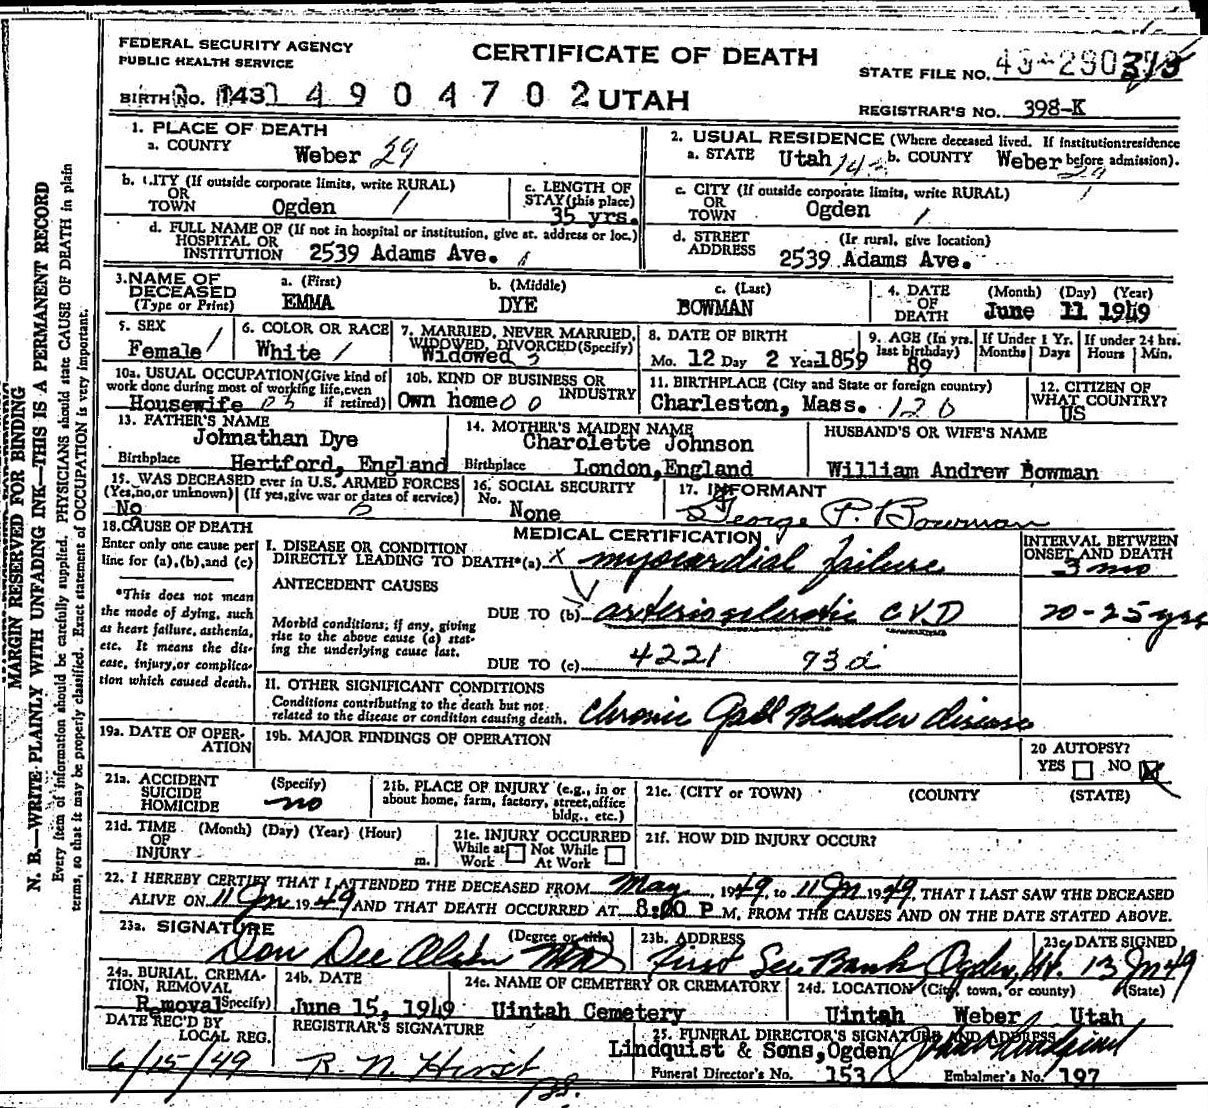 FEDERAL SECURITY AGENCY
PUBLIC HEALTH SERVICE
CERTIFICATE OF DEATH
STATE FILE NO.
BIRTH NO. 143 4904702 UTAH
REGISTRAR'S NO. 398-K
1. PLACE OF DEATH
a. COUNTY Weber 29
2. USUAL RESIDENCE (Where deceased lived. If institution:residence before admission).
a. STATE Utah b. COUNTY Weber 29
b. CITY (If outside corporate limits, write RURAL) OR TOWN Ogden 1
c. LENGTH OF STAY (this place) 35 yrs.
c. CITY (If outside corporate limits, write RURAL) OR TOWN Ogden 1
d. FULL NAME OF (If not in hospital or institution, give st. address or loc.) HOSPITAL OR INSTITUTION 2539 Adams Ave.
d. STREET ADDRESS (If rural, give location) 2539 Adams Ave.
3. NAME OF DECEASED (Type or Print)
a. (First) EMMA
b. (Middle) DYE
c. (Last) BOWMAN
4. DATE OF DEATH (Month) (Day) (Year) June 11 1949
5. SEX Female 1
6. COLOR OR RACE White 1
7. MARRIED, NEVER MARRIED, WIDOWED, DIVORCED (Specify) Widowed 3
8. DATE OF BIRTH Mo. 12 Day 2 Year 1859
9. AGE (In yrs. last birthday) 89
If Under 1 Yr. Months Days
If under 24 hrs. Hours Min.
10a. USUAL OCCUPATION (Give kind of work done during most of working life, even if retired) Housewife
10b. KIND OF BUSINESS OR INDUSTRY Own home 00
11. BIRTHPLACE (City and State or foreign country) Charleston, Mass. 120
12. CITIZEN OF WHAT COUNTRY? US
13. FATHER'S NAME Johnathan Dye
Birthplace Hertford, England
14. MOTHER'S MAIDEN NAME Charolette Johnson
Birthplace London, England
HUSBAND'S OR WIFE'S NAME
William Andrew Bowman
15. WAS DECEASED ever in U.S. ARMED FORCES
(Yes, no, or unknown) (If yes, give war or dates of service)
No
16. SOCIAL SECURITY No. None
17. INFORMANT
George P. Bowman
18. CAUSE OF DEATH
Enter only one cause per line for (a), (b), and (c)
*This does not mean the mode of dying, such as heart failure, asthenia, etc. It means the disease, injury, or complication which caused death.
MEDICAL CERTIFICATION
INTERVAL BETWEEN ONSET AND DEATH
I. DISEASE OR CONDITION
DIRECTLY LEADING TO DEATH*(a) x myocardial failure 3 mo
ANTECEDENT CAUSES
DUE TO (b) arteriosclerotic CVD 20-25 yrs
Morbid conditions; if any, giving rise to the above cause (a) stating the underlying cause last.
DUE TO (c) 4221 93d
11. OTHER SIGNIFICANT CONDITIONS
Conditions contributing to the death but not related to the disease or condition causing death.
Chronic Gall Bladder disease
19a. DATE OF OPERATION
19b. MAJOR FINDINGS OF OPERATION
20 AUTOPSY?
YES NO
21a. ACCIDENT SUICIDE HOMICIDE (Specify) no
21b. PLACE OF INJURY (e.g., in or about home, farm, factory, street, office bldg., etc.)
21c. (CITY or TOWN) (COUNTY) (STATE)
21d. TIME OF INJURY (Month) (Day) (Year) (Hour) m.
21e. INJURY OCCURRED
While at Work Not While At Work
21f. HOW DID INJURY OCCUR?
22. I HEREBY CERTIFY THAT I ATTENDED THE DECEASED FROM May, 1949, to 11 Jn 1949, THAT I LAST SAW THE DECEASED
ALIVE ON 11 Jn 1949 AND THAT DEATH OCCURRED AT 8:00 P M, FROM THE CAUSES AND ON THE DATE STATED ABOVE.
23a. SIGNATURE (Degree or title)
23b. ADDRESS
23c. DATE SIGNED
First Sec Bank Ogden, Ut. 13 Jn 49
24a. BURIAL, CREMATION, REMOVAL (Specify) Removal
24b. DATE June 15, 1949
24c. NAME OF CEMETERY OR CREMATORY Uintah Cemetery
24d. LOCATION (City, town, or county) (State)
Uintah Weber Utah
DATE REC'D BY LOCAL REG.
6/15/49
REGISTRAR'S SIGNATURE
25. FUNERAL DIRECTOR'S SIGNATURE AND ADDRESS
Lindquist & Sons, Ogden
Funeral Director's No. 153
Embalmer's No. 197
MARGIN RESERVED FOR BINDING
N. B.—WRITE PLAINLY WITH UNFADING INK—THIS IS A PERMANENT RECORD
Every item of information should be carefully supplied. PHYSICIANS should state CAUSE OF DEATH in plain
terms, so that it may be properly classified. Exact statement of OCCUPATION is very important.